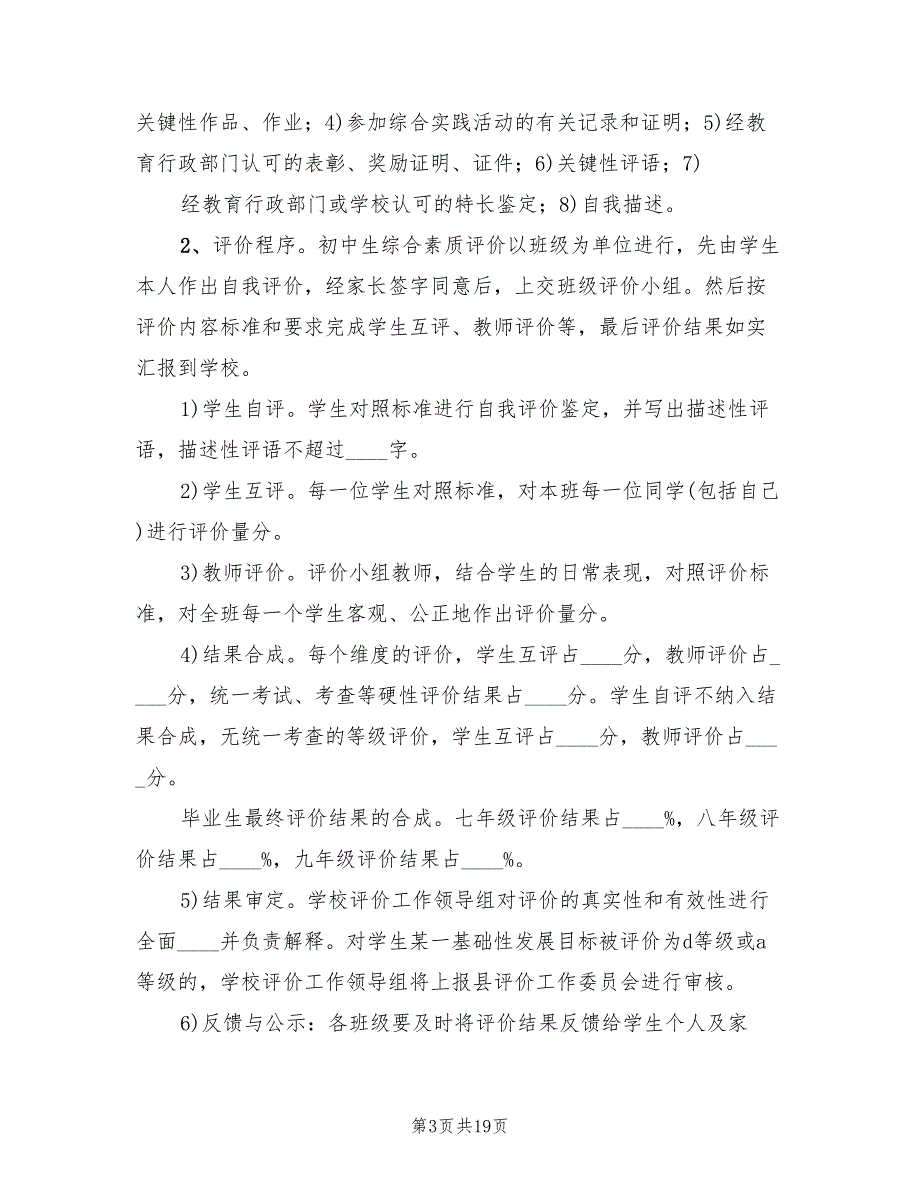 关键性作品、作业；4)参加综合实践活动的有关记录和证明；5)经教
育行政部门认可的表彰、奖励证明、证件；6)关键性评语；7)
经教育行政部门或学校认可的特长鉴定；8)自我描述。
2、评价程序。初中生综合素质评价以班级为单位进行，先由学生
本人作出自我评价，经家长签字同意后，上交班级评价小组。然后按
评价内容标准和要求完成学生互评、教师评价等，最后评价结果如实
汇报到学校。
1)学生自评。学生对照标准进行自我评价鉴定，并写出描述性评
语，描述性评语不超过____字。
2)学生互评。每一位学生对照标准，对本班每一位同学(包括自己
)进行评价量分。
3)教师评价。评价小组教师，结合学生的日常表现，对照评价标
准，对全班每一个学生客观、公正地作出评价量分。
4)结果合成。每个维度的评价，学生互评占____分，教师评价占_
___分，统一考试、考查等硬性评价结果占____分。学生自评不纳入结
果合成，无统一考查的等级评价，学生互评占____分，教师评价占___
_分。
毕业生最终评价结果的合成。七年级评价结果占____%，八年级评
价结果占____%，九年级评价结果占____%。
5)结果审定。学校评价工作领导组对评价的真实性和有效性进行
全面____并负责解释。对学生某一基础性发展目标被评价为d等级或a
等级的，学校评价工作领导组将上报县评价工作委员会进行审核。
6)反馈与公示：各班级要及时将评价结果反馈给学生个人及家
第3页共19页